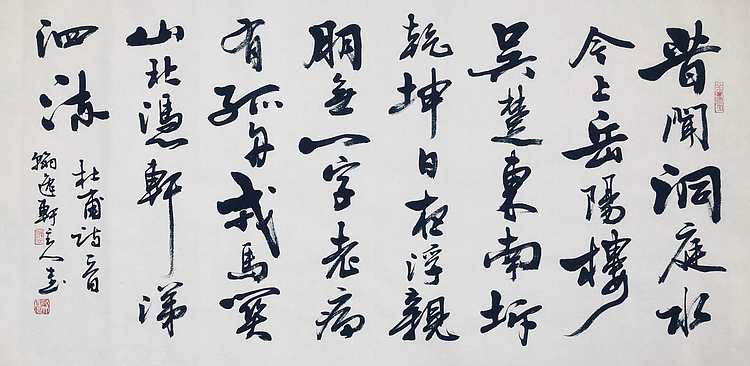 昔聞洞庭水
今上岳陽樓
吳楚東南坼
乾坤日夜浮親
朋無一字老病
有孤舟戎馬關
山北憑軒涕
泗流
杜甫詩一首
翰逸軒主人書